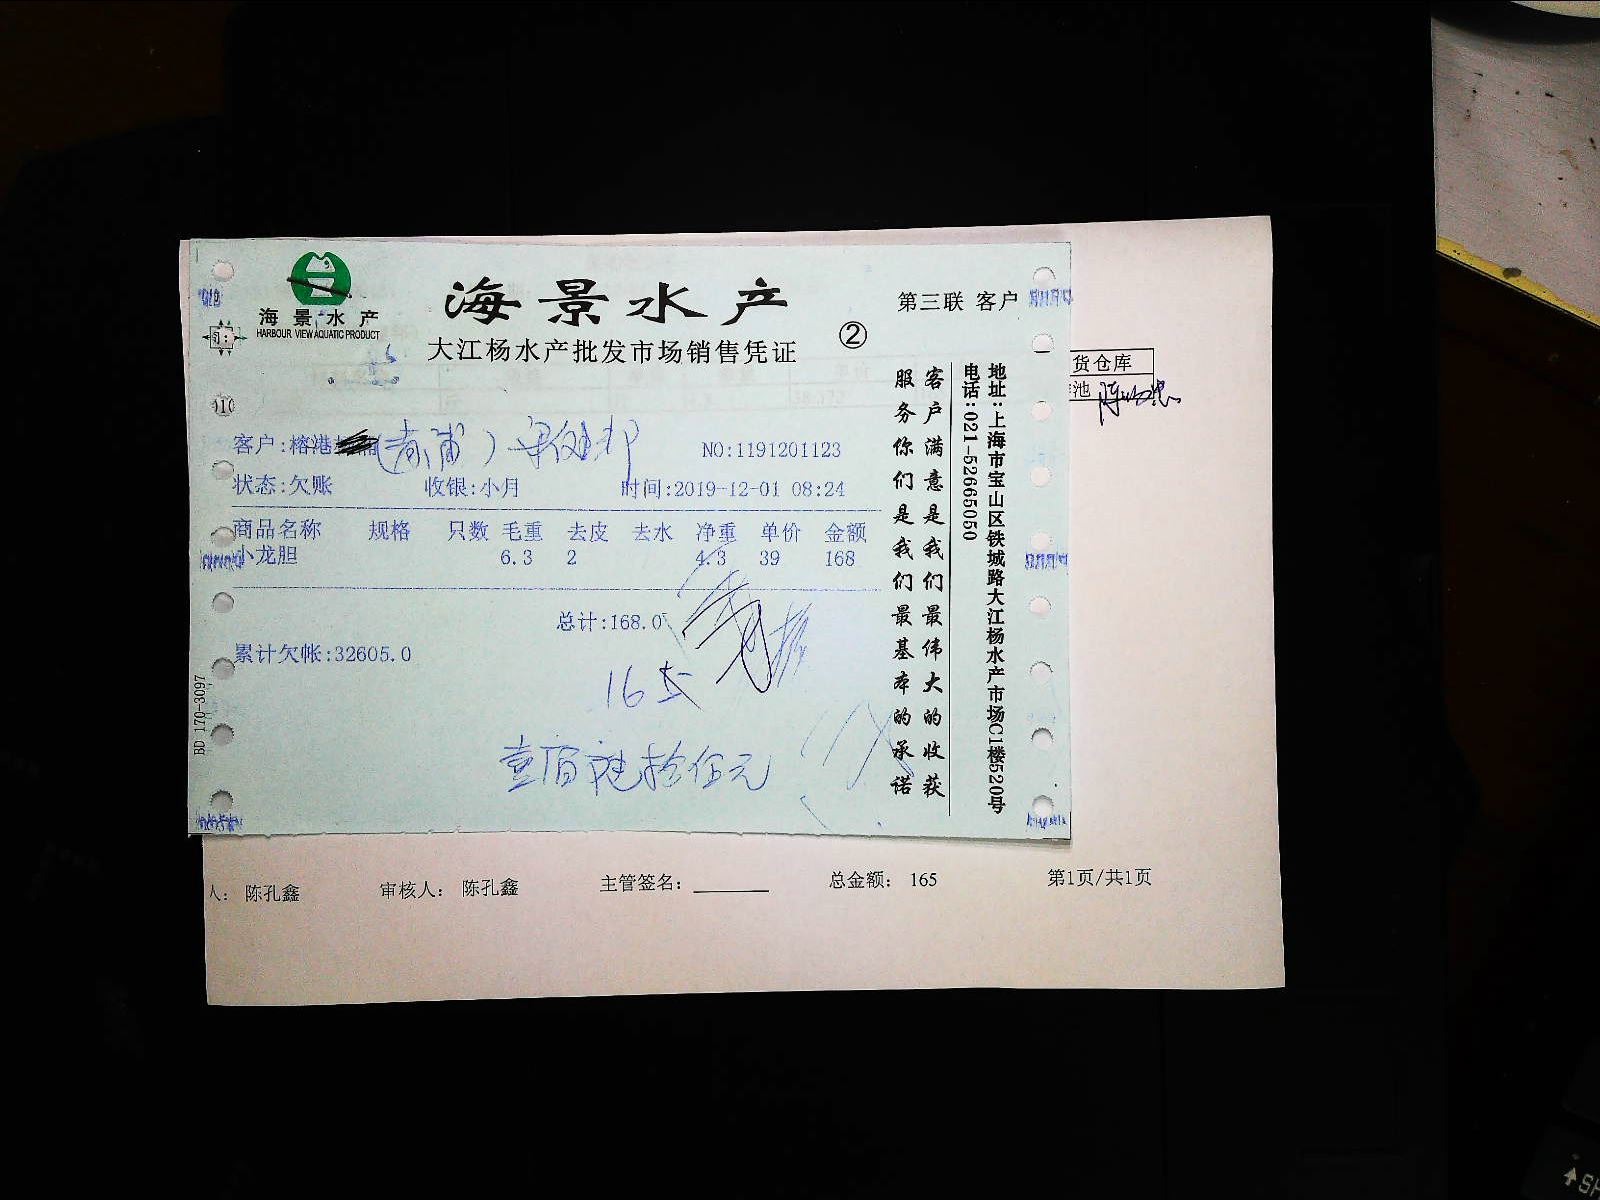 海景水产
HARBOUR VIEW AQUATIC PRODUCT
海景水产
大江杨水产批发市场销售凭证
②
第三联 客户
货仓库
池
客户:榕港
(青浦)
NO:1191201123
状态:欠账 收银:小月 时间:2019-12-01 08:24
商品名称 规格 只数 毛重 去皮 去水 净重 单价 金额
小龙胆 6.3 2 4.3 39 168
总计:168.0
累计欠帐:32605.0
165
壹佰陆拾伍元
客户满意是我们最伟大的收获
服务你们是我们最基本的承诺
地址:上海市宝山区铁城路大江杨水产市场C1楼520号
电话:021-52665050
BD 170-3097
人: 陈孔鑫 审核人: 陈孔鑫 主管签名: 总金额: 165 第1页/共1页